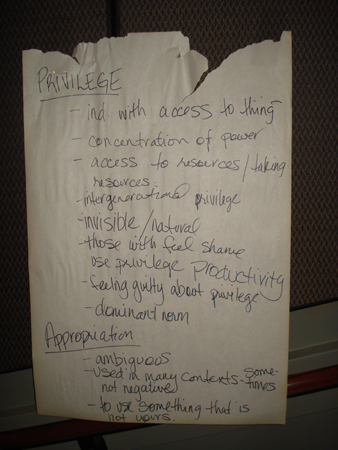 PRIVILEGE
- ind. with access to thing
- concentration of power
- access to resources/taking
resources.
- intergenerational privilege
- invisible/natural
- those with feel shame
use privilege productivity
- feeling guilty about privilege
- dominant norm
Appropriation
- ambiguous
- used in many contexts - some-
not negative times
- to use something that is
not yours.